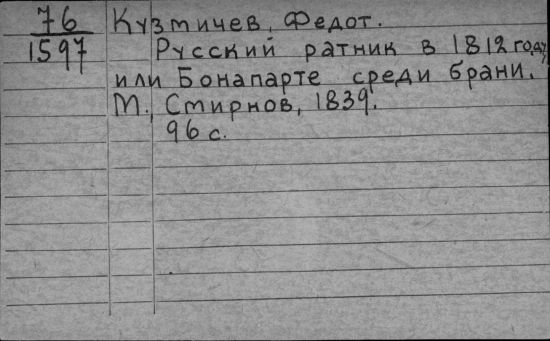 76 Кузмичев, Федот.
1597 Русский ратник в 1812 году,
или Бонапарте среди брани.
М., Смирнов, 1839.
96 с.